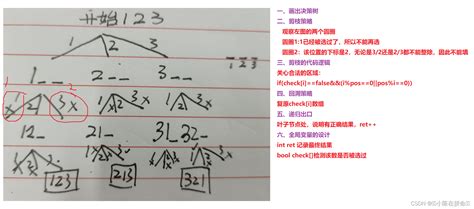 开始123
1 2 3
1_ _ 2_ _ 3_ _
1 2 3
1 2
x 1 2 3 x 1 1x2 3 1 2 3x
12_ 21_ 31_ 32_
123 213 321
一、画出决策树
二、剪枝策略
观察左面的两个圆圈
圆圈1:1已经被选过了，所以不能再选
圆圈2：该位置的下标是2，无论是3/2还是2/3都不能整除，因此不能填
三、剪枝的代码逻辑
关心合法的区域:
if(check[i]==false&&(i%pos==0||pos%i==0))
四、回溯策略
复原check[i]数组
五、递归出口
叶子节点处，说明有正确结果，ret++
六、全局变量的设计
int ret 记录最终结果
bool check[]检测该数是否被选过